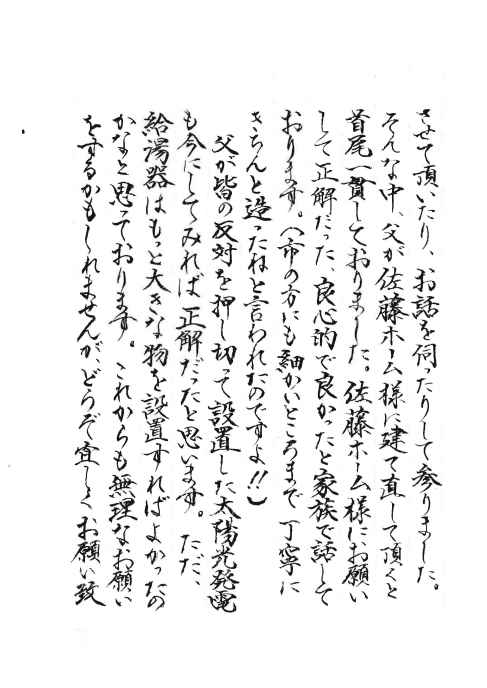 させて頂いたり、お話を伺ったりして参りました。
そんな中、父が佐藤ホーム様に建て直して頂くと
首尾一貫しておりました。佐藤ホーム様にお願い
して正解だった、良心的で良かったと家族で話して
おります。（市の方にも細かいところまで丁寧に
きちんと造ったねと言われたのですよ!!）
父が皆の反対を押し切って設置した太陽光発電
も今にしてみれば正解だったと思います。ただ、
給湯器はもっと大きな物を設置すればよかったの
かなと思っております。これからも無理なお願い
をするかもしれませんが、どうぞ宜しくお願い致